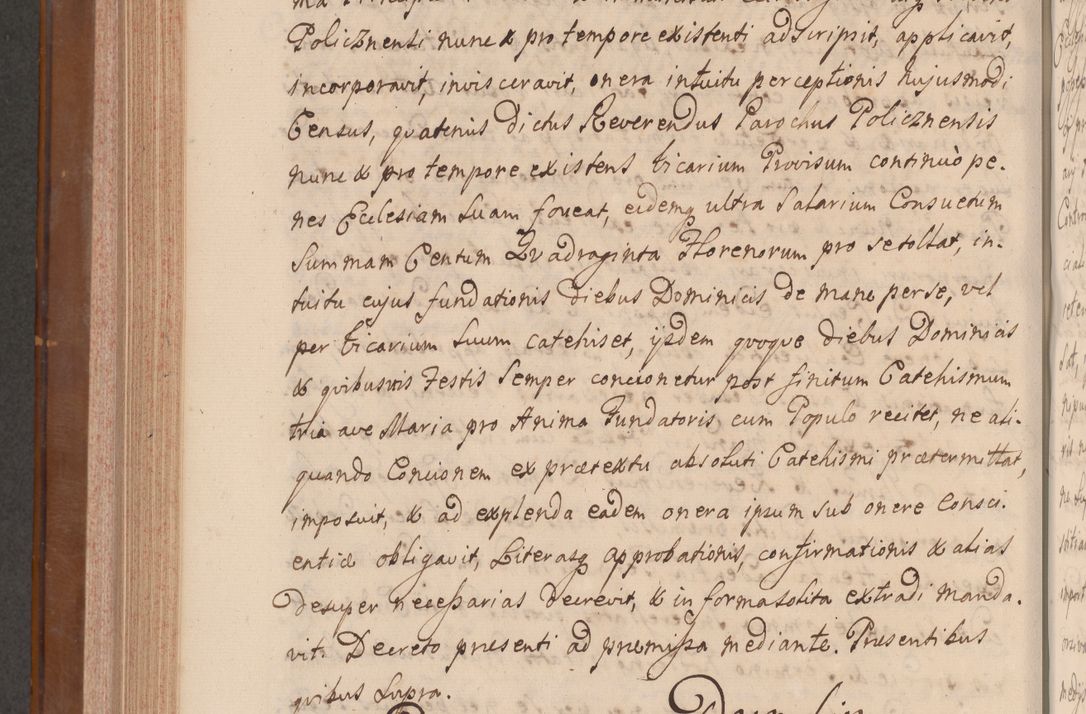 Policznensi nunc & pro tempore existenti adscripsit, applicavit,
incorporavit, invisceravit, onera intuitu perceptionis hujusmodi
Census, quatenus dictus Reverendus Parochus Policznensis
nunc & pro tempore existens Vicarium Provisum continuò pe-
nes Ecclesiam Suam foveat, eidemq ultra Salarium Consuetum
Summam Centum Quadraginta Florenorum pro se tollat, in-
tuitu cujus fundationis diebus Dominicis de mane per se, vel
per Vicarium Suum catechiset, ijsdem quoque diebus Dominicis
& quibusvis Festis Semper concionetur post finitum Catehismum
tria ave Maria pro Anima Fundatoris cum Populo recitet, ne ali-
quando Concionem ex prætextu absoluti Catehismi prætermittat,
imposuit, & ad explenda eadem onera ipsum sub onere Consci-
entiæ obligavit, Literasq approbationis, confirmationis & alias
desuper necessarias decrevit, & in forma solita extradi manda-
vit. Decreto presenti ad premissa mediante. Presentibus
quibus Supra.